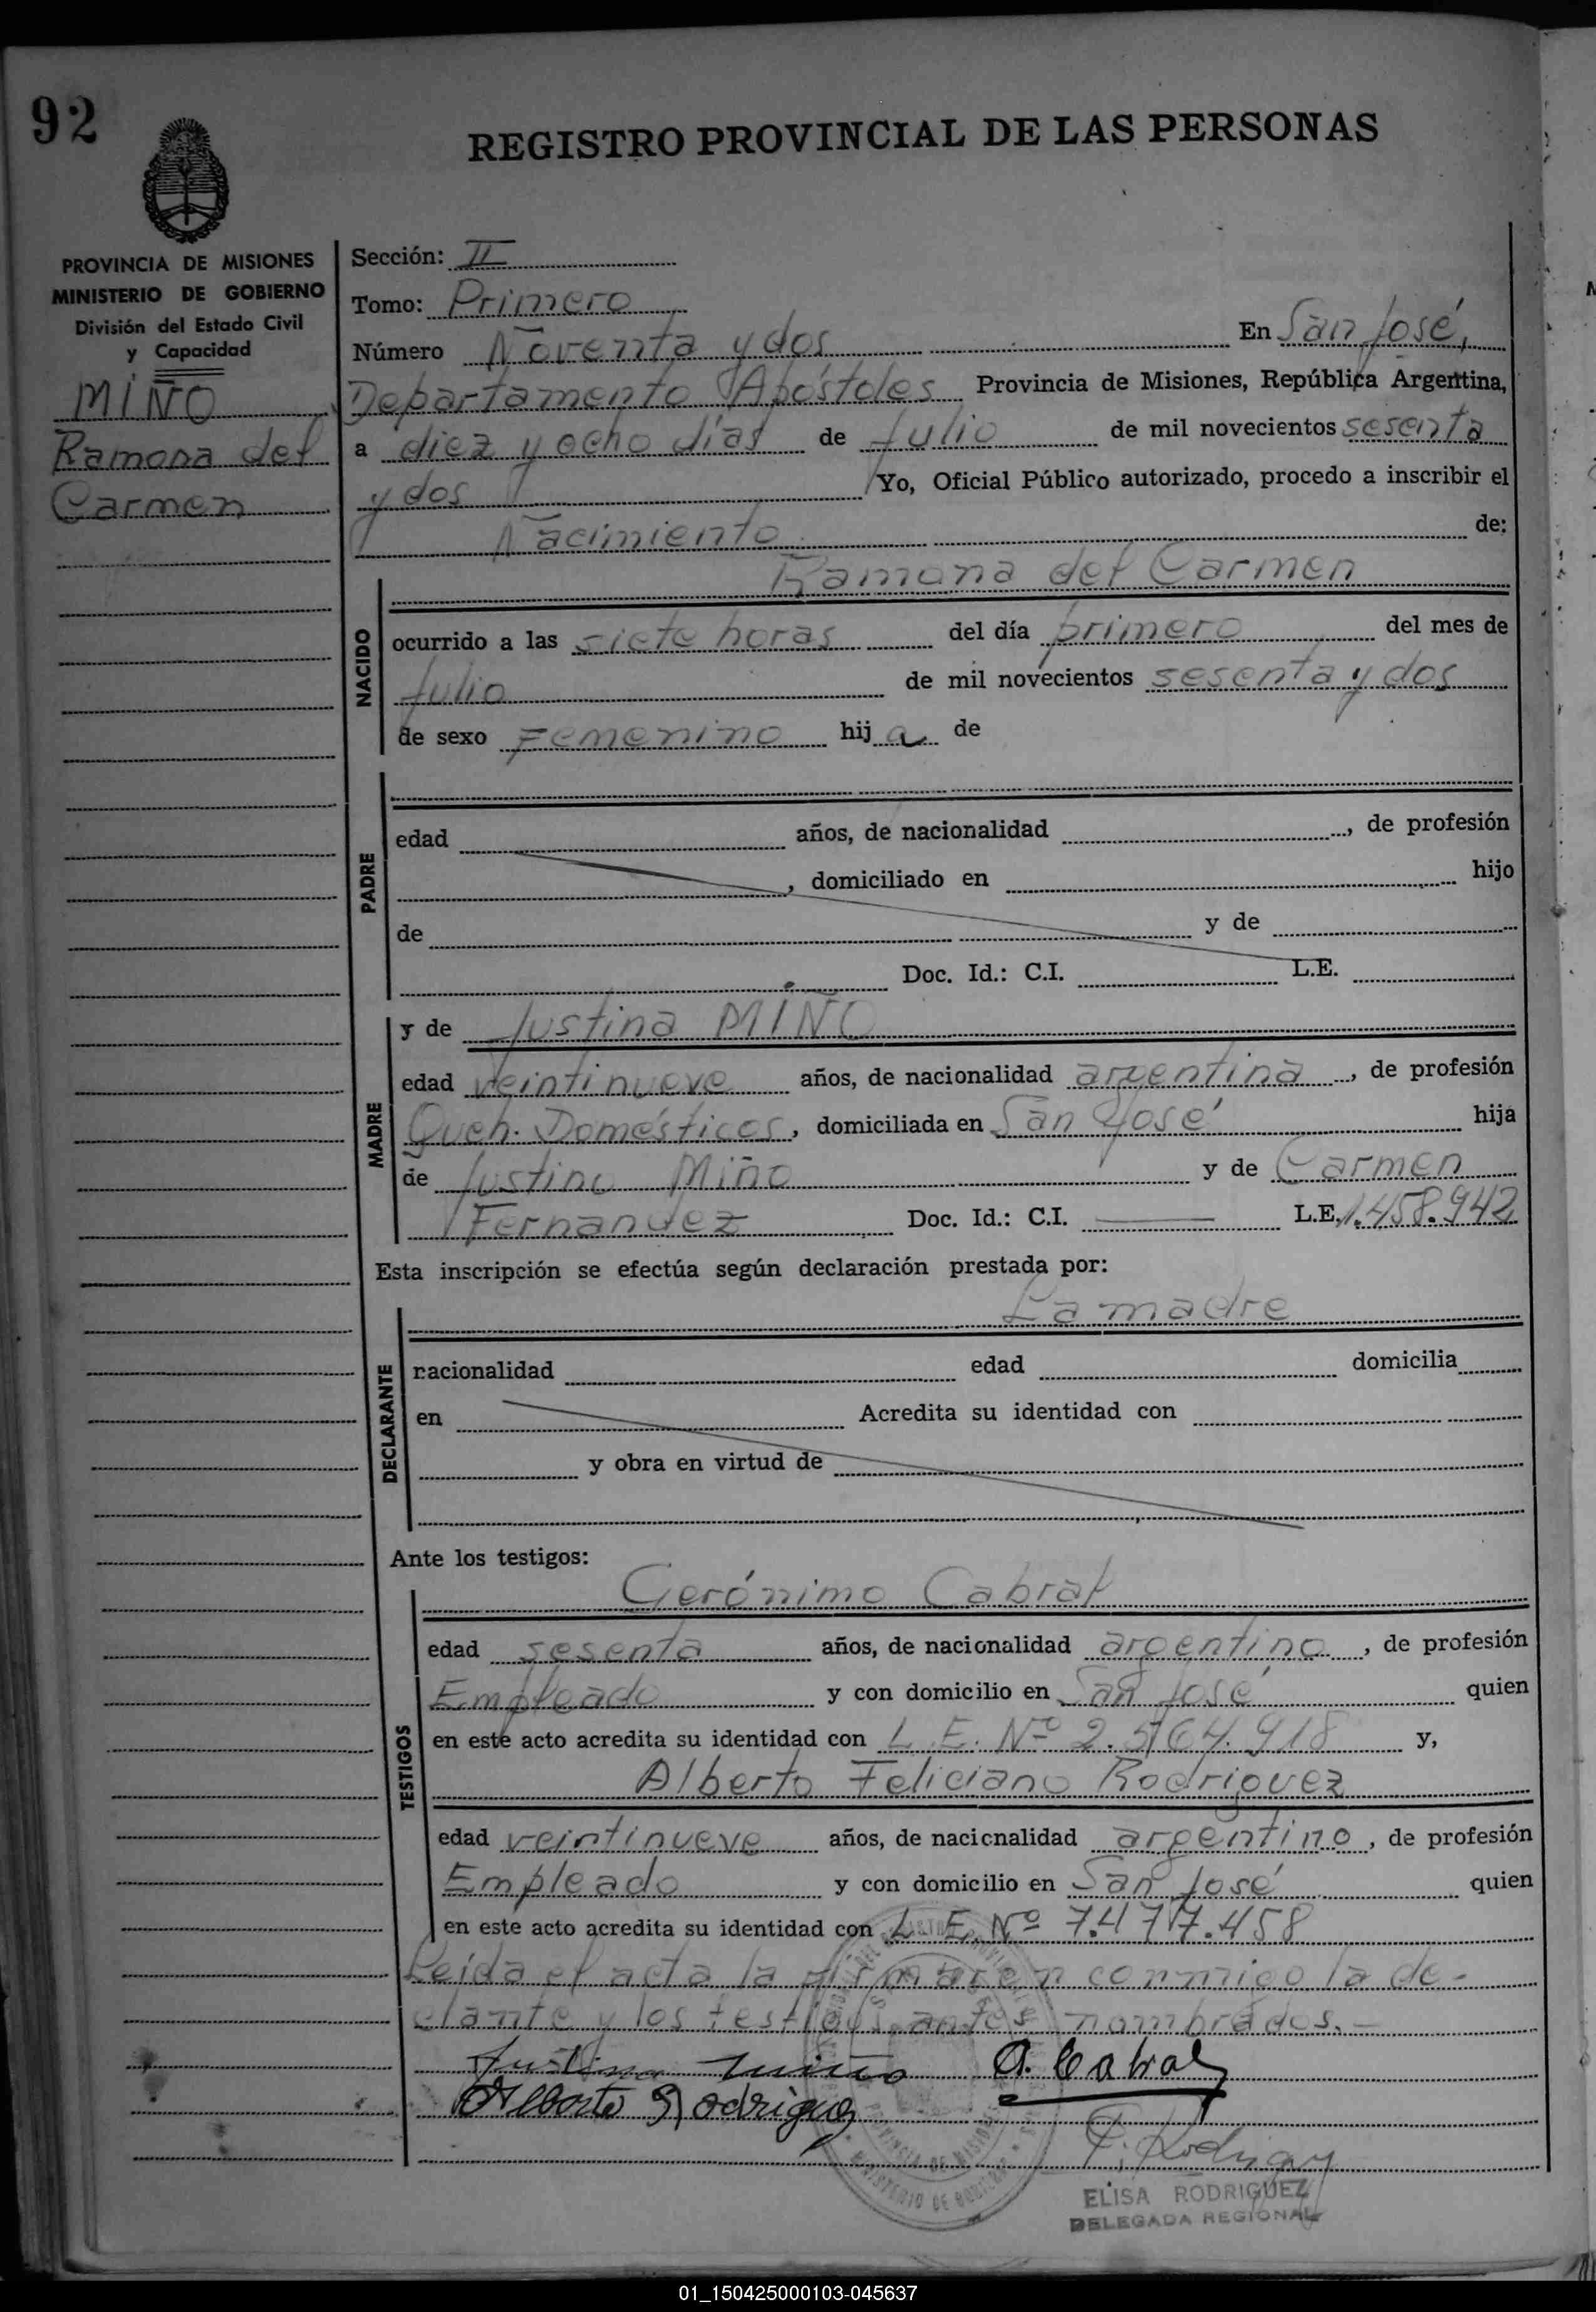 92
REGISTRO PROVINCIAL DE LAS PERSONAS
PROVINCIA DE MISIONES
MINISTERIO DE GOBIERNO
División del Estado Civil
y Capacidad
MIÑO
Ramona del
Carmen
Sección: II
Tomo: Primero
Número Noventa y dos En San José,
Departamento Apóstoles Provincia de Misiones, República Argentina,
a diez y ocho días de Julio de mil novecientos sesenta
y dos Yo, Oficial Público autorizado, procedo a inscribir el
Nacimiento de:
Ramona del Carmen
NACIDO
ocurrido a las siete horas del día primero del mes de
Julio de mil novecientos sesenta y dos
de sexo Femenino hij a de
PADRE
edad años, de nacionalidad , de profesión
, domiciliado en hijo
de y de
Doc. Id.: C.I. L.E.
MADRE
y de Justina MIÑO
edad veintinueve años, de nacionalidad argentina , de profesión
Queh. Domésticos, domiciliada en San José hija
de Justino Miño y de Carmen
Fernandez Doc. Id.: C.I. — L.E. 1.458.942
Esta inscripción se efectúa según declaración prestada por:
La madre
DECLARANTE
nacionalidad edad domicilia
en Acredita su identidad con
y obra en virtud de
Ante los testigos:
Gerónimo Cabral
TESTIGOS
edad sesenta años, de nacionalidad argentino , de profesión
Empleado y con domicilio en San José quien
en este acto acredita su identidad con L. E. Nº 2.564.918 y,
Alberto Feliciano Rodriguez
edad veintinueve años, de nacionalidad argentino , de profesión
Empleado y con domicilio en San José quien
en este acto acredita su identidad con L. E. Nº 7.477.458
Leída el acta la firmaren conmigo la de-
clante y los testigos antes nombrados.-
Justina miño G. Cabral
Alberto Rodriguez
E. Rodriguez
PROVINCIA DE MISIONES
MINISTERIO DE GOBIERNO
ELISA RODRIGUEZ
DELEGADA REGIONAL
01_150425000103-045637